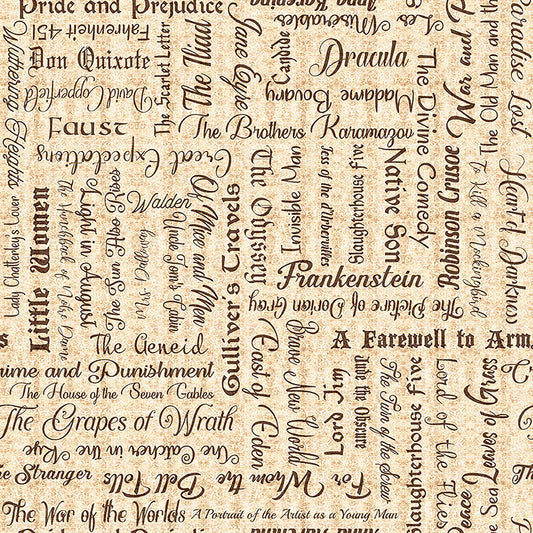 Pride and Prejudice
Fahrenheit 451
Don Quixote
David Copperfield
Faust
Great Expectations
Wuthering Heights
The Scarlet Letter
The Iliad
Jane Eyre
Candide
Les Miserables
Anna Karenina
Dracula
Madame Bovary
The Brothers Karamazov
The Divine Comedy
War and
The Old Man and the
Paradise Lost
Lady Chatterley's Lover
Little Women
The Hunchback of Notre Dame
Light in August
The Sun Also Rises
Walden
Mrs. Dalloway
Uncle Tom's Cabin
Of Mice and Men
Gulliver's Travels
The Odyssey
Invisible Man
Tess of the d'Urbervilles
Slaughterhouse Five
Native Son
Robinson Crusoe
To Kill a Mockingbird
Heart of Darkness
Frankenstein
The Picture of Dorian Gray
The Aeneid
A Farewell to Arms
s
rime and Punishment
The House of the Seven Gables
The Grapes of Wrath
The Catcher in the Rye
he Stranger
For Whom the Bell Tolls
East of Eden
Brave New World
Lord Jim
Jude the Obscure
The Turn of the Screw
Slaughterhouse Five
Lord of the Flies
Leaves of Grass
Peace
the Sea
The War of the Worlds
A Portrait of the Artist as a Young Man
Pride and Prejudice
Anna Karenina